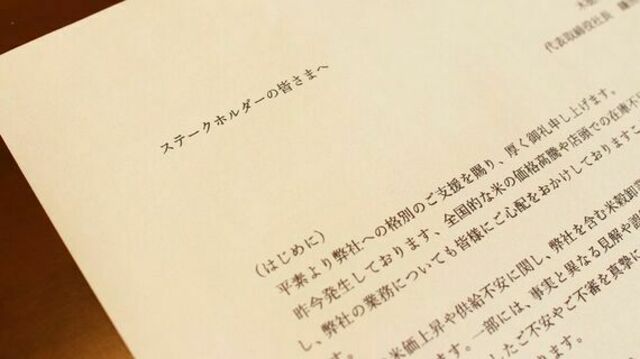 代表取締役社長
ステークホルダーの皆さまへ
(はじめに)
平素より弊社への格別のご支援を賜り、厚く御礼申し上げます。
昨今発生しております、全国的な米の価格高騰や店頭での在庫不
し、弊社の業務についても皆様にご心配をおかけしておりますこ
米価上昇や供給不安に関し、弊社を含む米穀卸
す。一部には、事実と異なる見解や
したご不安やご不審を真摯に